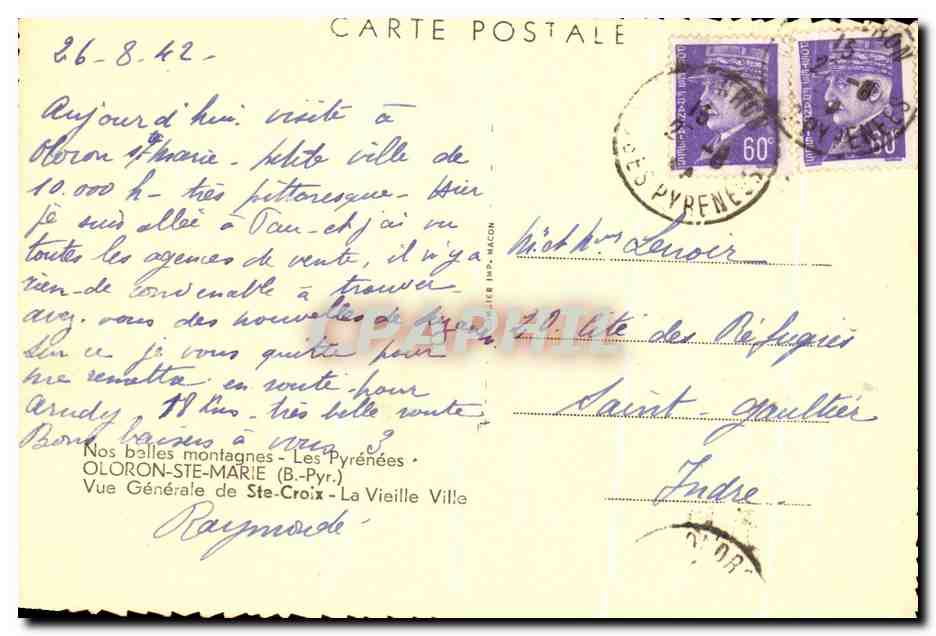 CARTE POSTALE
26-8-42-
Aujourd'hui visite à
Oloron Ste Marie - petite ville de
10.000 h - très pittoresque - Hier
je suis allée à Pau - et j'ai vu
toutes les agences de vente, il n'y a
rien - de convenable à trouver -
avez-vous des nouvelles de
Sur ce je vous quitte pour
me remettre en route pour
Arudy 18 Kms - très belle route
Bons baisers à vous 3
Raymonde
Nos belles montagnes - Les Pyrénées -
OLORON-STE-MARIE (B.-Pyr.)
Vue Générale de Ste-Croix - La Vieille Ville
IMP. MACON
CPAPHIL
60c
60c
PYRENEES
PYRENEES
15
15
OLOR
Lenoir
20. Cité des Réfugiés
Saint-Gaultier
Indre